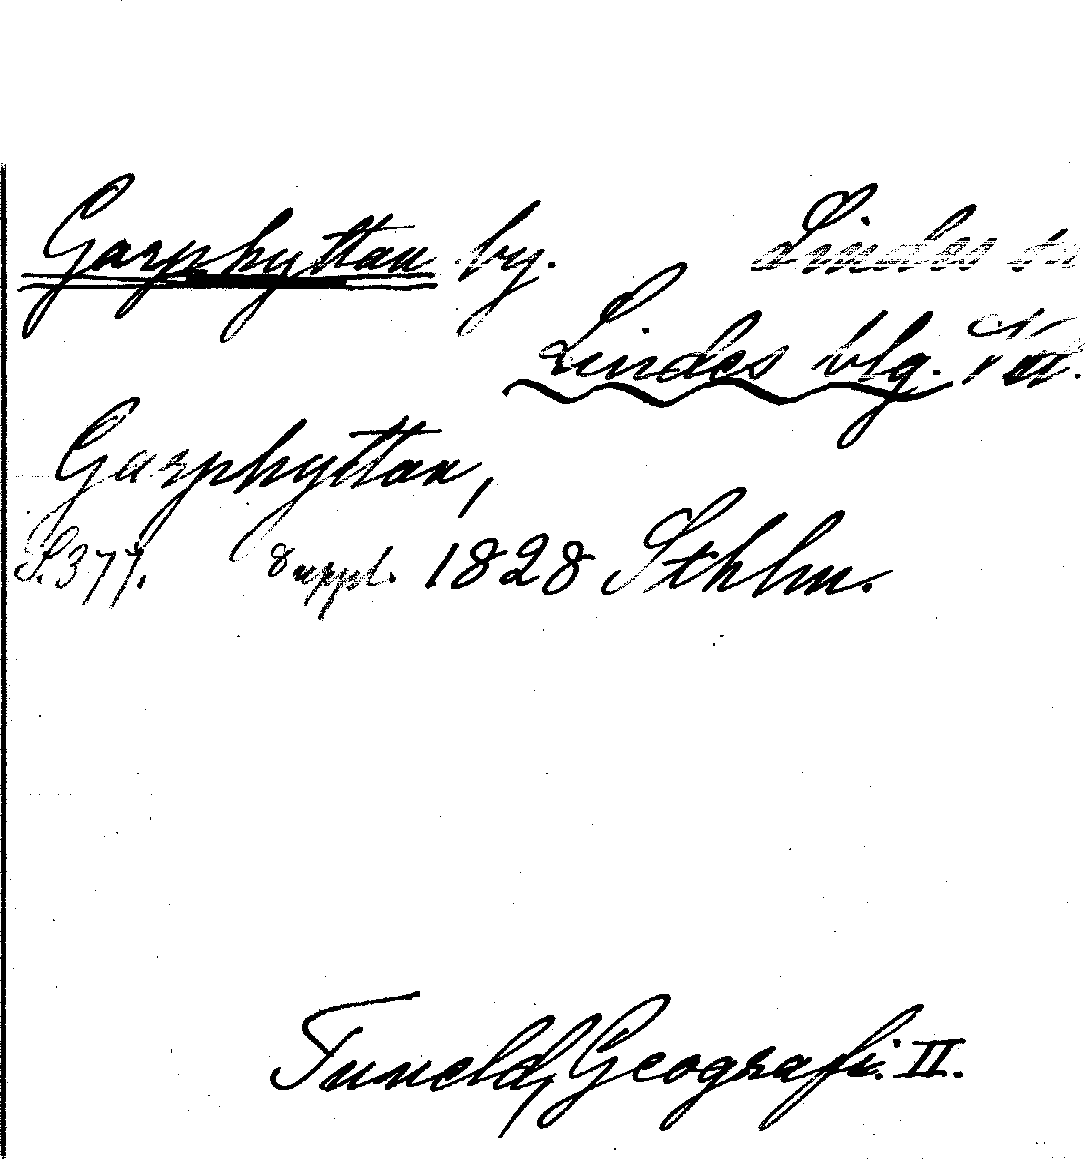 Garphyttan by. Lindes
Lindes blg.
Garphyttan,
S. 377. 8 uppl. 1828 Sthlm.
Tuneld, Geografi. II.